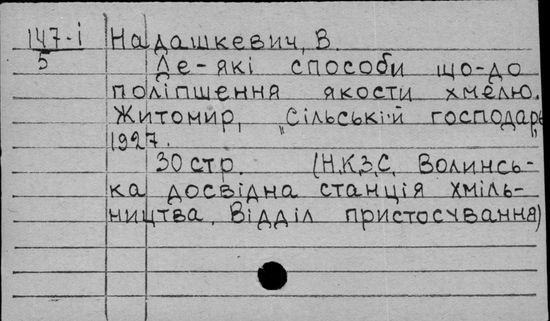 147-і Надашкевич, В.
5 Де-які способи що-до
поліпшення якости хмелю.
Житомир, „Сільській господарь"
1927.
30 стр. (Н.К.З.С. Волинсь-
ка досвідна станція хміль-
ництва, Відділ пристосування)